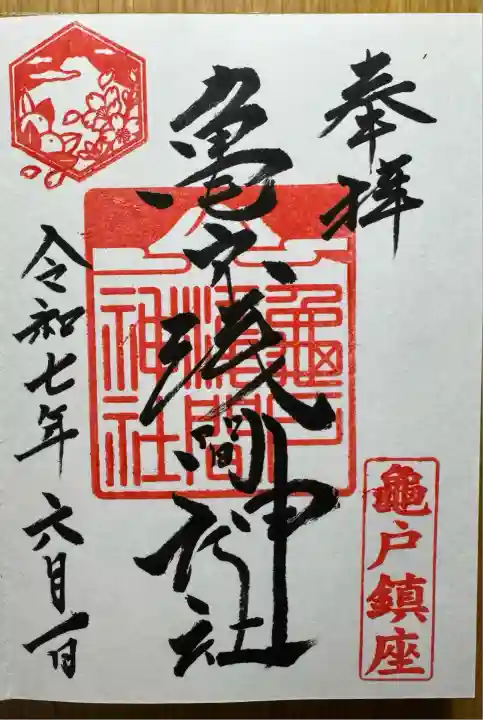 奉拝
亀戸浅間神社
龜戸
浅間
神社
龜戸鎮座
令和七年六月一日